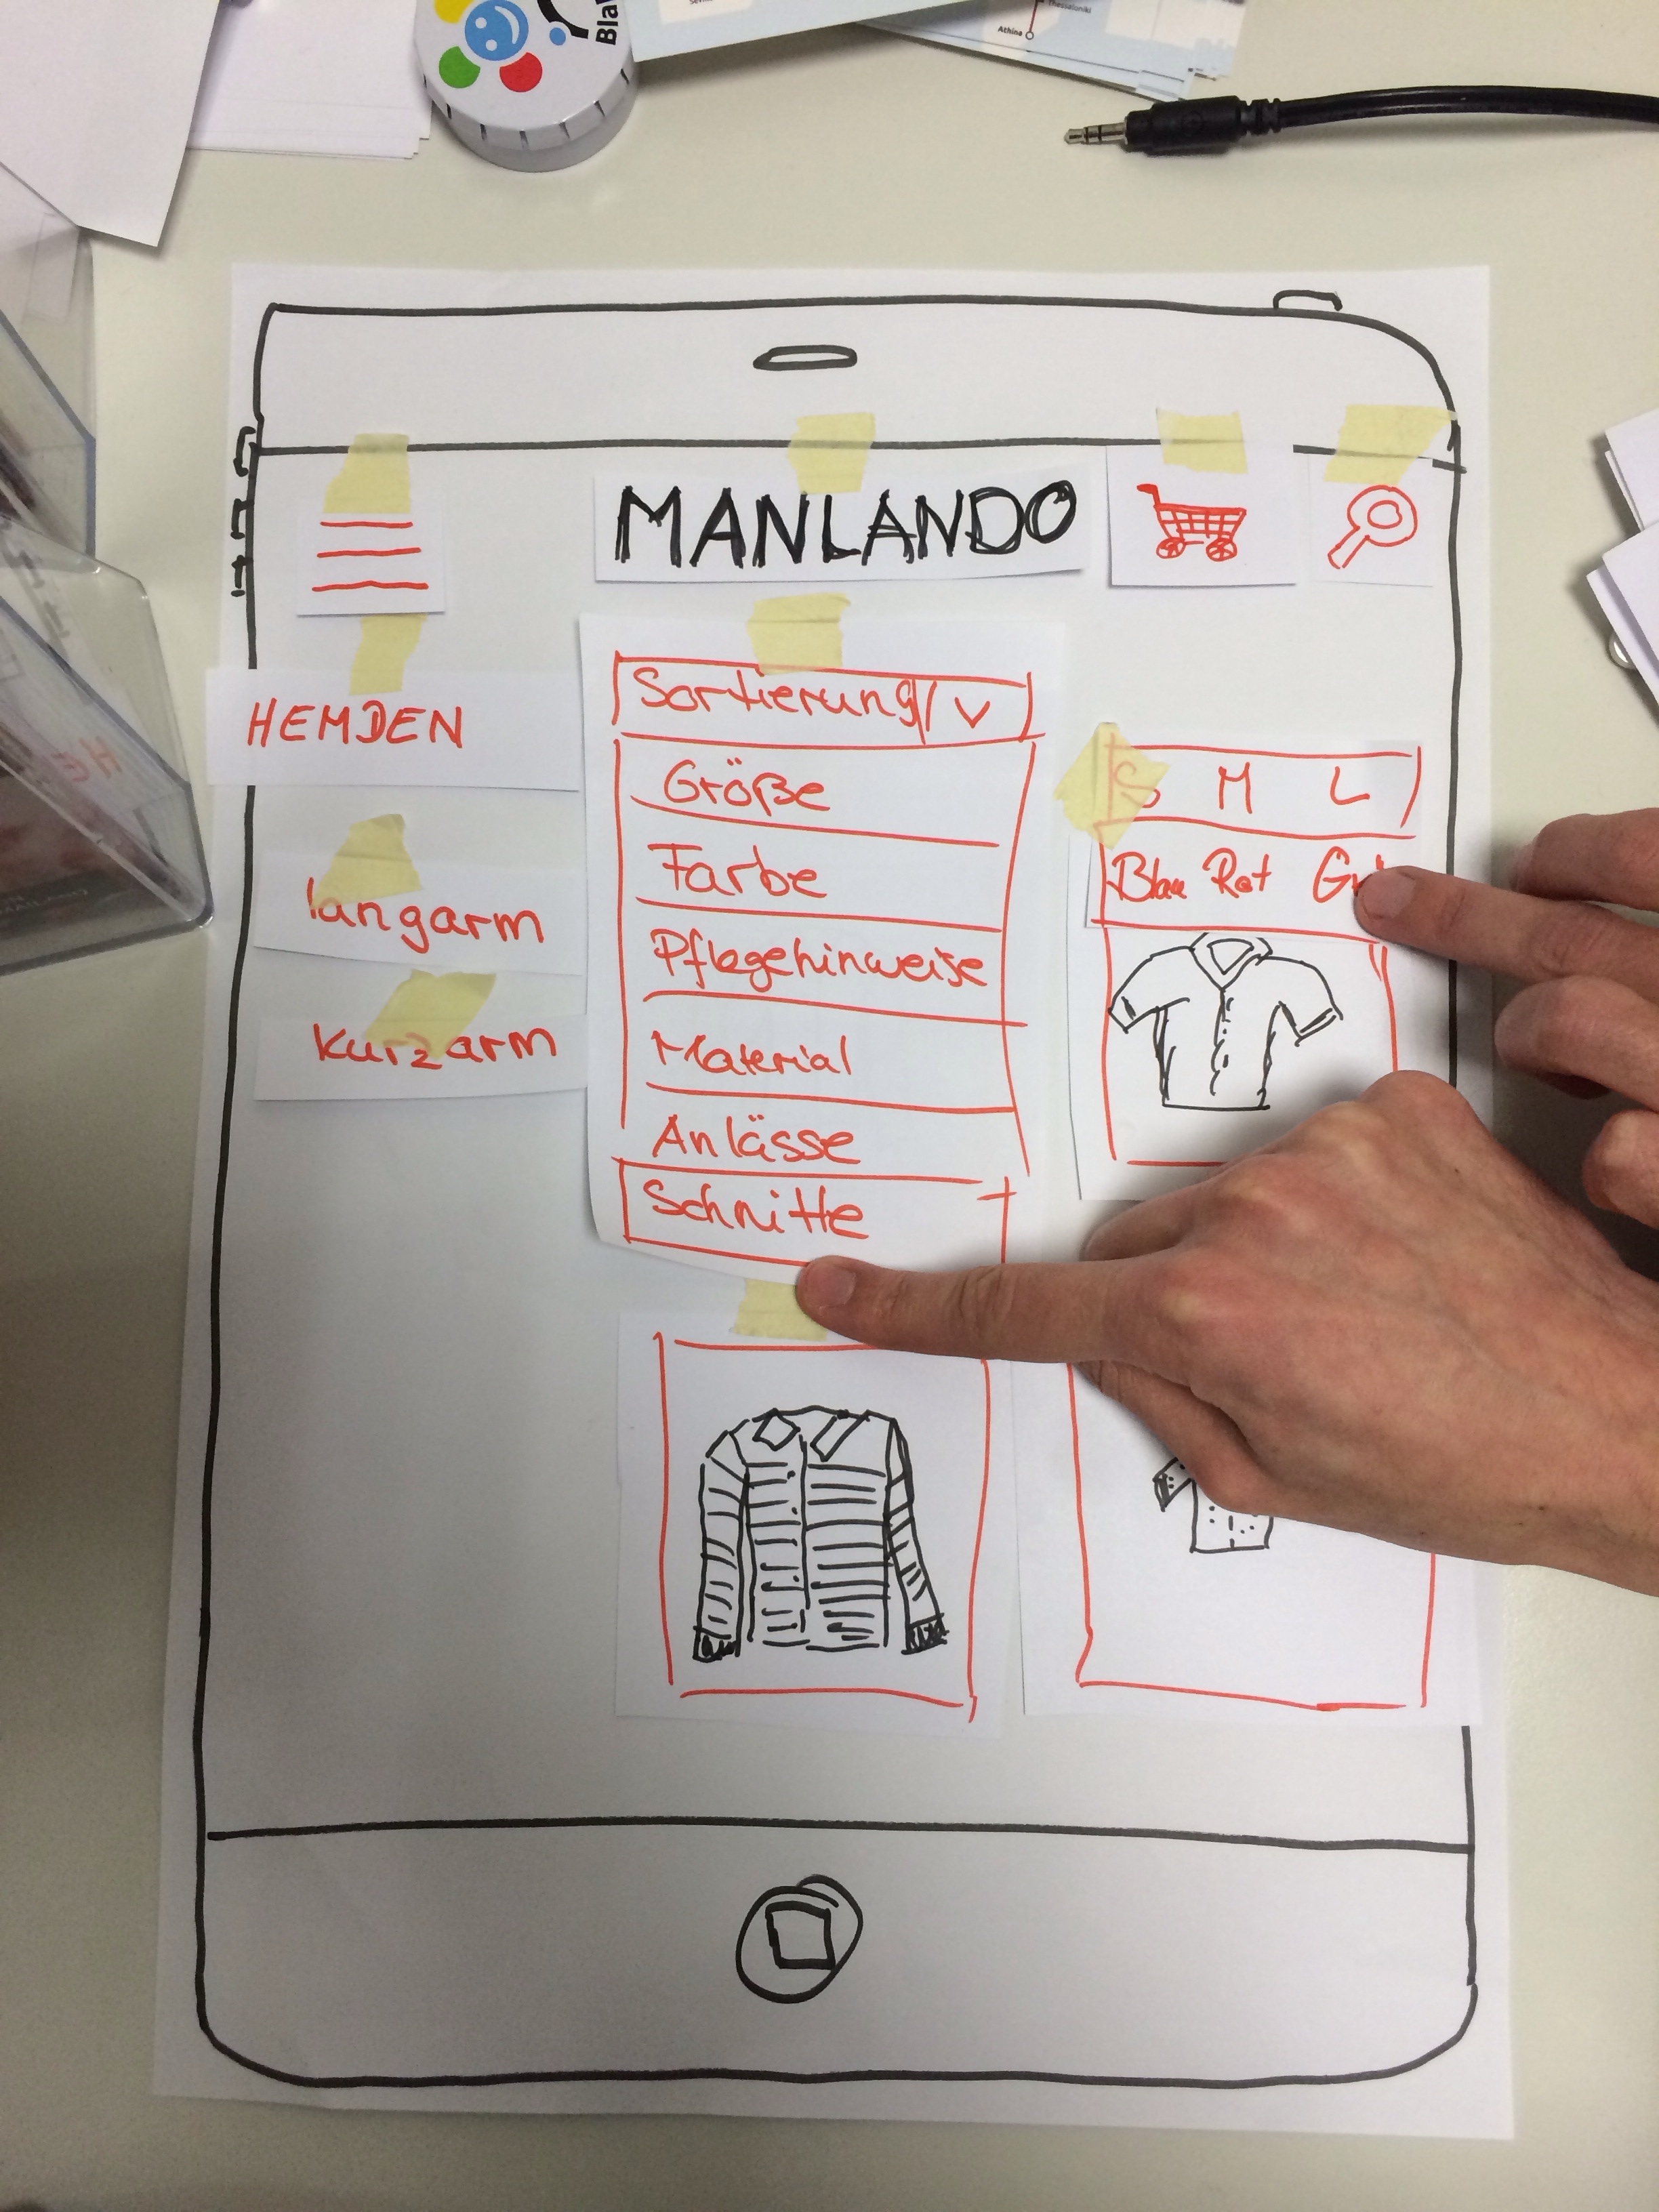 Thessaloniki
Athina
MANLANDO
HEMDEN
langarm
kurzarm
Sortierung V
Größe
Farbe
Pflegehinweise
Material
Anlässe
Schnitte
S M L
Blau Rot